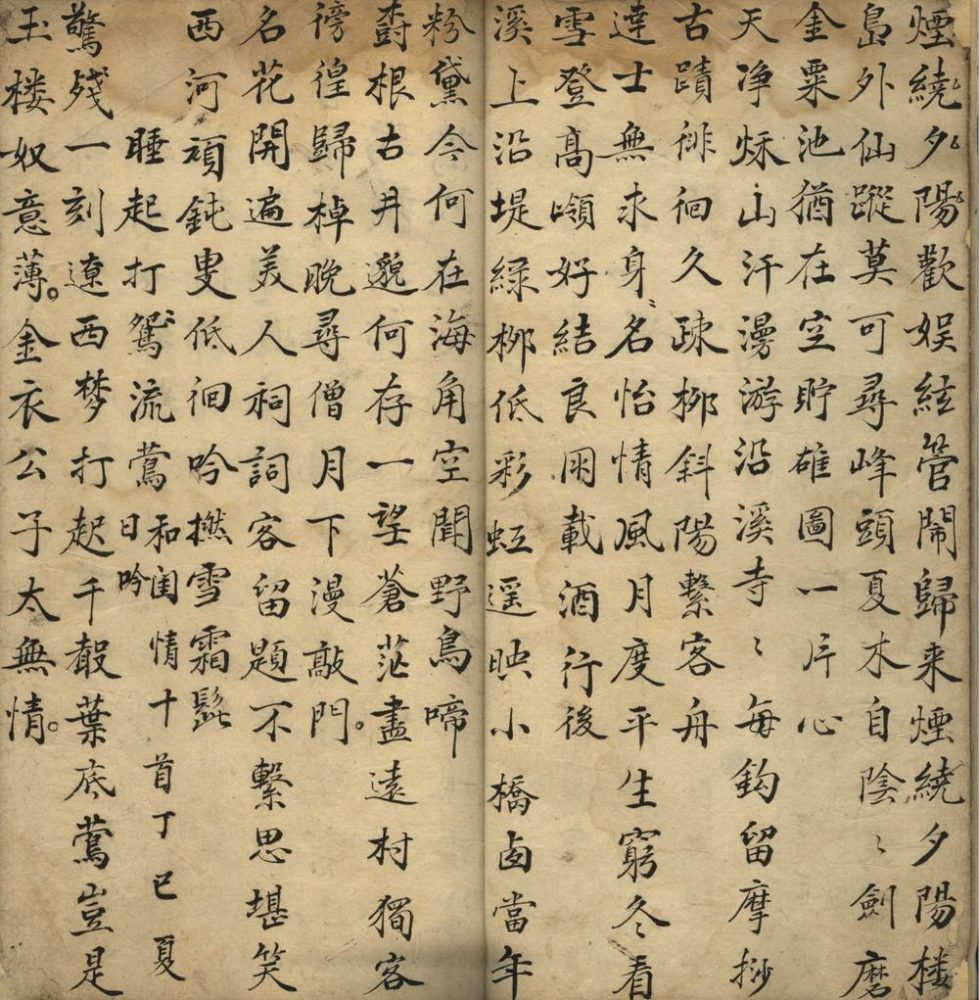 煙繞夕陽歡娯絃管鬧歸来煙繞夕陽楼
島外仙蹤莫可尋峰頭夏木自陰〻劍磨
金粟池猶在空貯雄圖一片心
天净秌山汗漫游沿溪寺〻每鈎留摩挱
古蹟徘徊久疎栁斜陽繫客舟
達士無求身名怡情風月度平生窮冬看
雪登高嶺好結良朋載酒行後
溪上沿堤緑栁低彩虹遥映小橋卤當年
粉黛今何在海角空聞野鳥啼
樹根古井邈何存一望蒼茫盡遠村獨客
徬徨歸棹晚尋僧月下漫敲門。
名花開遍美人祠詞客留題不繫思堪笑
西河頑鈍叟低徊吟撚雪霜髭
睡起打鴛流鶯 和閨情十首丁巳夏
日吟
驚殘一刻遼西梦打起千般葉底鶯豈是
玉楼奴意薄。金衣公子太無情。